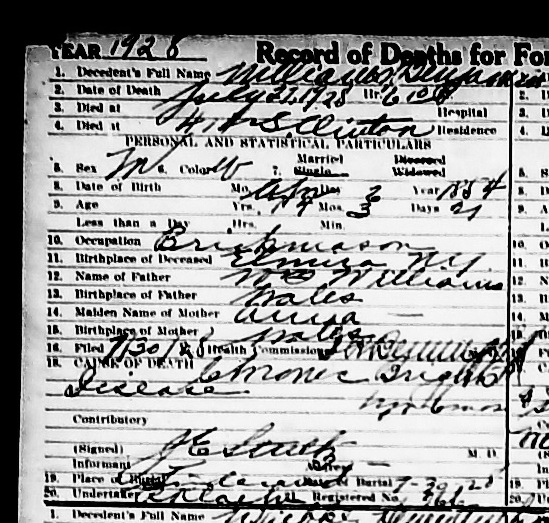 YEAR 1928 Record of Deaths for For
1. Decedent's Full Name Williams, Benjamin
2. Date of Death July 21, 1928 Hr. 6
3. Died at Hospital
4. Died at S. Clinton Residence
PERSONAL AND STATISTICAL PARTICULARS
Married Divorced
5. Sex M 6. Color W 7. Single Widowed
8. Date of Birth Mo. April Day 2 Year 1854
9. Age Yrs. 74 Mos. 3 Days 21
Less than a Day Hrs. Min.
10. Occupation Brickmason
11. Birthplace of Deceased Elmira NY
12. Name of Father Wm Williams
13. Birthplace of Father Wales
14. Maiden Name of Mother Anna —
15. Birthplace of Mother Wales
16. Filed 7/30/28 Health Commissioner
18. CAUSE OF DEATH Chronic Brights
Disease
Contributory
(Signed) J E M. D.
Informant
19. Place of Burial Date of Burial 7-30-28
20. Undertaker Registered No.
1. Decedent's Full Name